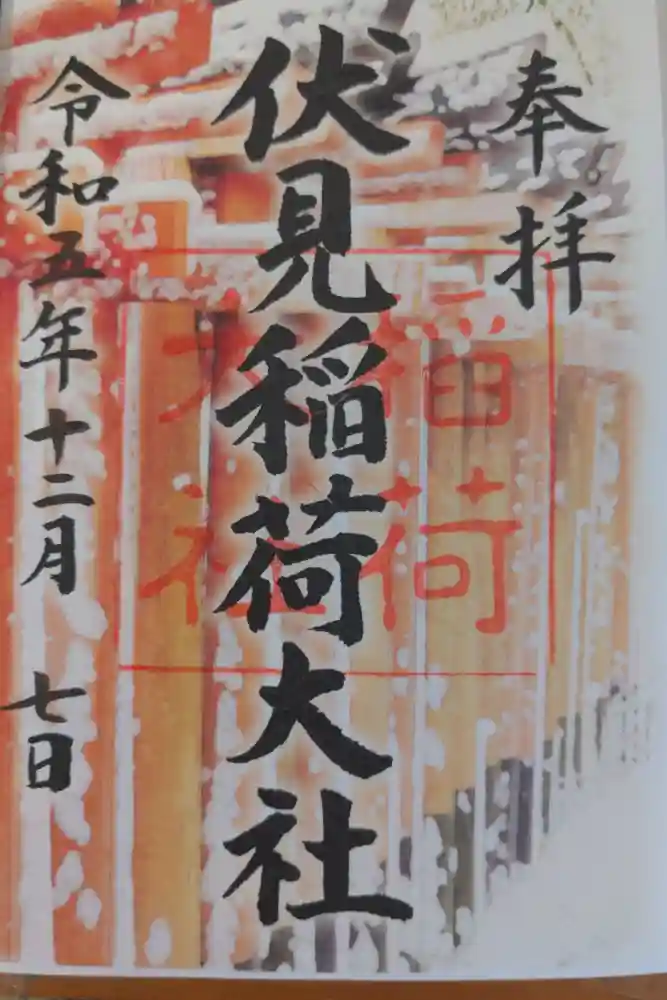 奉拝
伏見稲荷大社
稲荷
大社
令和五年十二月七日